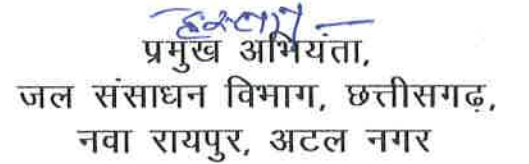 हस्ता/-
प्रमुख अभियंता,
जल संसाधन विभाग, छत्तीसगढ़,
नवा रायपुर, अटल नगर